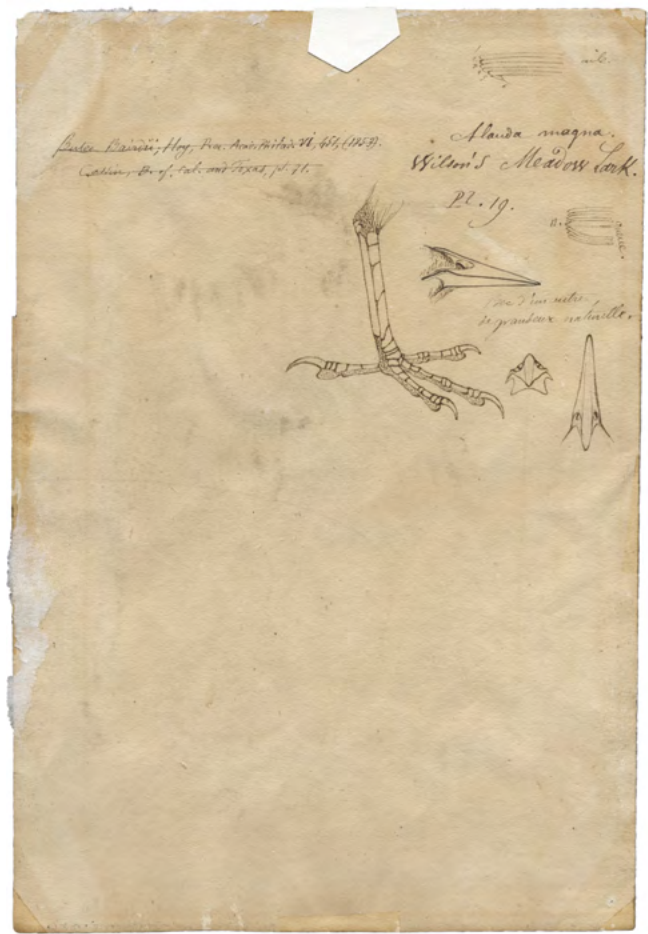 Buteo Bairdii, Hoy, Proc. Acad. Philad. VI, 451, (1853).
Cassin, B. of Cal. and Texas, pl. 41.
Alauda magna.
Wilson's Meadow Lark.
Pl. 19.
de grandeur naturelle.